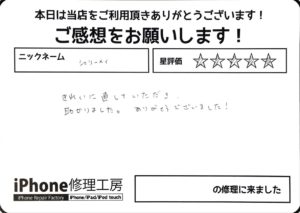 本日は当店をご利用頂きありがとうございます！
ご感想をお願いします！
ニックネーム
シェリーメイ
星評価 ☆☆☆☆☆
きれいに直していただき、
助かりました。ありがとうございました！
iPhone修理工房
iPhone Repair Factory iPhone/iPad/iPod touch
の修理に来ました